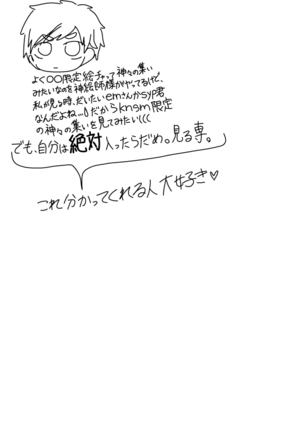 よく〇〇限定絵チャって神々の集い
みたいなのを神絵師様がやってるけど、
私が見る時、だいたいemさんかsyp君
なんだよね…。だからknsm限定
の神々の集いを見てみたい(((
でも、自分は絶対入ったらだめ。見る専。
これ分かってくれる人大好き♡